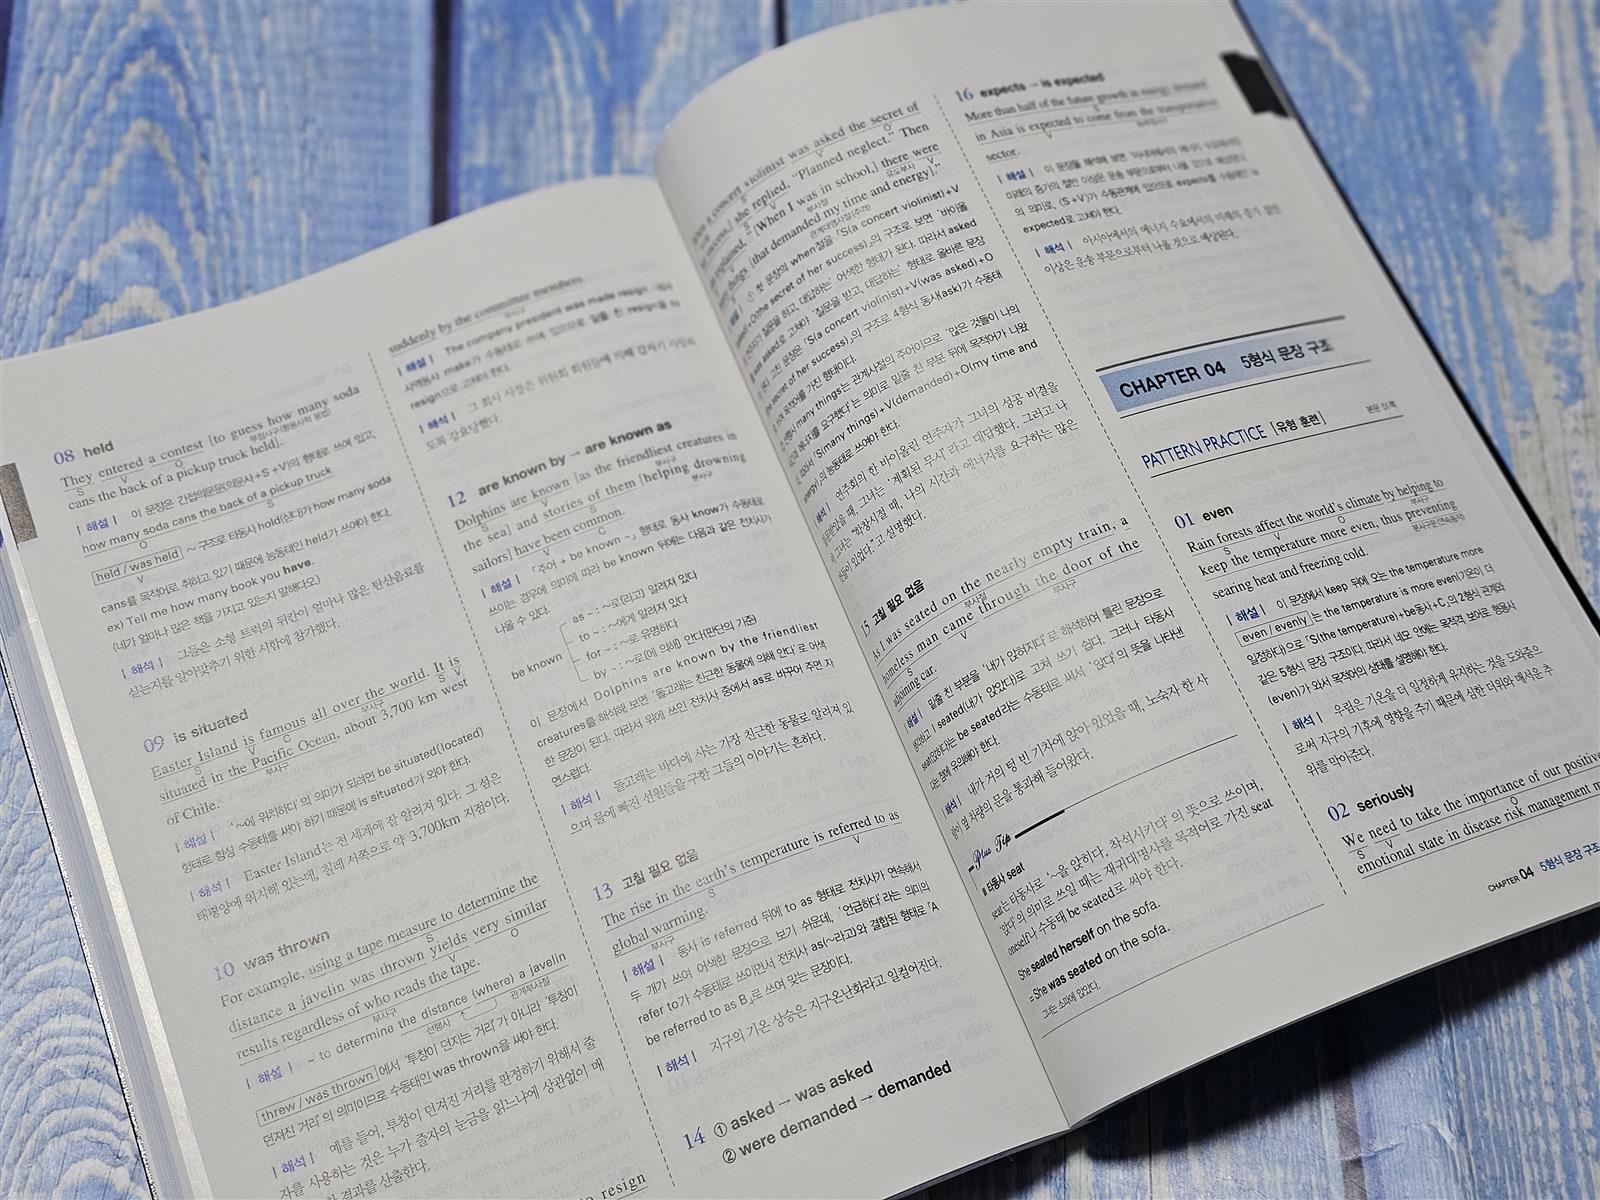 08 held
They entered a contest [to guess how many soda
S V O 부정사구(형용사적 용법)
cans the back of a pickup truck held].
| 해설 | 이 문장은 간접의문문(의문사+S+V)의 형태로 쓰여 있고,
how many soda cans the back of a pickup truck
O S
held / was held ~ 구조로 타동사 hold(싣다)가 how many soda
V
cans를 목적어로 취하고 있기 때문에 능동태인 held가 쓰여야 한다.
ex) Tell me how many book you have.
(네가 얼마나 많은 책을 가지고 있는지 말해다오.)
| 해석 | 그들은 소형 트럭의 뒤칸이 얼마나 많은 탄산음료를
싣는지를 알아맞추기 위한 시합에 참가했다.
09 is situated
Easter Island is famous all over the world. It is
S V C 부사구 S V
situated in the Pacific Ocean, about 3,700 km west
부사구
of Chile.
| 해설 | '~에 위치하다'의 의미가 되려면 be situated(located)
형태로 항상 수동태를 써야 하기 때문에 is situated가 와야 한다.
| 해석 | Easter Island는 전 세계에 잘 알려져 있다. 그 섬은
태평양에 위치해 있는데, 칠레 서쪽으로 약 3,700km 지점이다.
10 was thrown
For example, using a tape measure to determine the
S
distance a javelin was thrown yields very similar
V O
results regardless of who reads the tape.
부사구
| 해설 | ~ to determine the distance (where) a javelin
선행사 관계부사절
threw / was thrown 에서 '투창이 던지는 거리'가 아니라 '투창이
던져진 거리'의 의미이므로 수동태인 was thrown을 써야 한다.
| 해석 | 예를 들어, 투창이 던져진 거리를 판정하기 위해서 줄
자를 사용하는 것은 누가 줄자의 눈금을 읽느냐에 상관없이 매
한 결과를 산출한다.
to resign
suddenly by the committee members.
부사구
| 해설 | The company president was made resign
사역동사 make가 수동태로 쓰여 있으므로 밑줄 친 resign을 to
resign으로 고쳐야 한다.
| 해석 | 그 회사 사장은 위원회 회원들에 의해 갑자기
도록 강요당했다.
12 are known by → are known as
Dolphins are known [as the friendliest creatures in
S V 부사구
the sea] and stories of them [helping drowning
S 부사구
sailors] have been common.
V C
| 해설 | 「주어 + be known ~」 형태로 동사 know가 수동태로
쓰이는 경우에 의미에 따라 be known 뒤에는 다음과 같은 전치사가
나올 수 있다.
as ~ : ~로(라고) 알려져 있다
to ~ : ~에게 알려져 있다
be known for ~ : ~로 유명하다
by ~ : ~로(에 의해) 안다(판단의 기준)
이 문장에서 Dolphins are known by the friendliest
creatures를 해석해 보면 '돌고래는 친근한 동물에 의해 안다'로 어색
한 문장이 된다. 따라서 위에 쓰인 전치사 중에서 as로 바꾸어 주면 자
연스럽다.
| 해석 | 돌고래는 바다에 사는 가장 친근한 동물로 알려져 있
으며 물에 빠진 선원들을 구한 그들의 이야기는 흔하다.
13 고칠 필요 없음
The rise in the earth's temperature is referred to as
S V
global warming.
부사구
| 해설 | 동사 is referred 뒤에 to as 형태로 전치사가 연속해서
두 개가 쓰여 어색한 문장으로 보기 쉬운데, '언급하다'라는 의미의
refer to가 수동태로 쓰이면서 전치사 as(~라고)와 결합된 형태로 「A
be referred to as B」로 쓰여 맞는 문장이다.
| 해석 | 지구의 기온 상승은 지구온난화라고 일컬어진다.
14 ① asked → was asked
② were demanded → demanded
a concert violinist was asked the secret of
S V O
success,] she replied, "Planned neglect." Then
S V
explained, "[When I was in school,] there were
부사절 유도부사 V
things [that demanded my time and energy]."
관계대명사절(주격)
① 첫 문장의 when절을 「S(a concert violinist)+V
+O(the secret of her success)」의 구조로 보면 '바이올
질문을 하고, 대답하는' 어색한 형태가 된다. 따라서 asked
was asked로 고쳐야 '질문을 받고, 대답하는' 형태로 올바른 문장
고친 문장은 「S(a concert violinist)+V(was asked)+O
secret of her success)」의 구조로 4형식 동사(ask)가 수동태
목적어를 가진 형태이다.
many things는 관계사절의 주어이므로 '많은 것들이 나의
에너지를 요구했다'는 의미로 밑줄 친 부분 뒤에 목적어가 나왔
「S(many things)+V(demanded)+O(my time and
energy)」의 능동태로 쓰여야 한다.
해석 | 연주회의 한 바이올린 연주자가 그녀의 성공 비결을
받았을 때, 그녀는 '계획된 무시'라고 대답했다. 그러고 나
그녀는 "학창시절 때, 나의 시간과 에너지를 요구하는 많은
것들이 있었다."고 설명했다.
15 고칠 필요 없음
As I was seated on the nearly empty train, a
부사절
homeless man came through the door of the
S V 부사구
adjoining car.
해설 | 밑줄 친 부분을 '내가 앉혀지다'로 해석하여 틀린 문장으로
생각하고 I seated(내가 앉았다)로 고쳐 쓰기 쉽다. 그러나 타동사
seat(앉히다)는 be seated라는 수동태로 써서 '앉다'의 뜻을 나타낸
다는 점에 유의해야 한다.
해석 | 내가 거의 텅 빈 기차에 앉아 있었을 때, 노숙자 한 사
람이 옆 차량의 문을 통과해 들어왔다.
Plus Tip
■ 타동사 seat
seat는 타동사로 '~을 앉히다, 착석시키다'의 뜻으로 쓰이며,
'앉다'의 의미로 쓰일 때는 재귀대명사를 목적어로 가진 seat
oneself나 수동태 be seated로 써야 한다.
She seated herself on the sofa.
= She was seated on the sofa.
그녀는 소파에 앉았다.
16 expects → is expected
More than half of the future growth in energy demand
S
in Asia is expected to come from the transportation
V 부사구
sector.
| 해설 | 이 문장을 해석해 보면
미래의 증가의 절반 이상은 운송 부문으로부터 나올 것으로 예상된다'
의 의미로, (S+V)가 수동관계에 있으므로 expects를 수동태인 is
expected로 고쳐야 한다.
| 해석 | 아시아에서의 에너지 수요에서의 미래의 증가 절반
이상은 운송 부문으로부터 나올 것으로 예상된다.
CHAPTER 04 5형식 문장 구조
PATTERN PRACTICE [유형 훈련]
01 even
Rain forests affect the world's climate by helping to
S V O 부사구
keep the temperature more even, thus preventing
부사구(분사구문)
searing heat and freezing cold.
| 해설 | 이 문장에서 keep 뒤에 오는 the temperature more
even / evenly 는 the temperature is more even(기온이 더
일정하다)으로 「S(the temperature)+be동사+C」의 2형식 관계와
같은 5형식 문장 구조이다. 따라서 네모 안에는 목적격 보어로 형용사
(even)가 와서 목적어의 상태를 설명해야 한다.
| 해석 | 우림은 기온을 더 일정하게 유지하는 것을 도와줌으
로써 지구의 기후에 영향을 주기 때문에 심한 더위와 매서운 추
위를 막아준다.
02 seriously
We need to take the importance of our positive
S V O
emotional state in disease risk management
CHAPTER 04 5형식 문장 구조